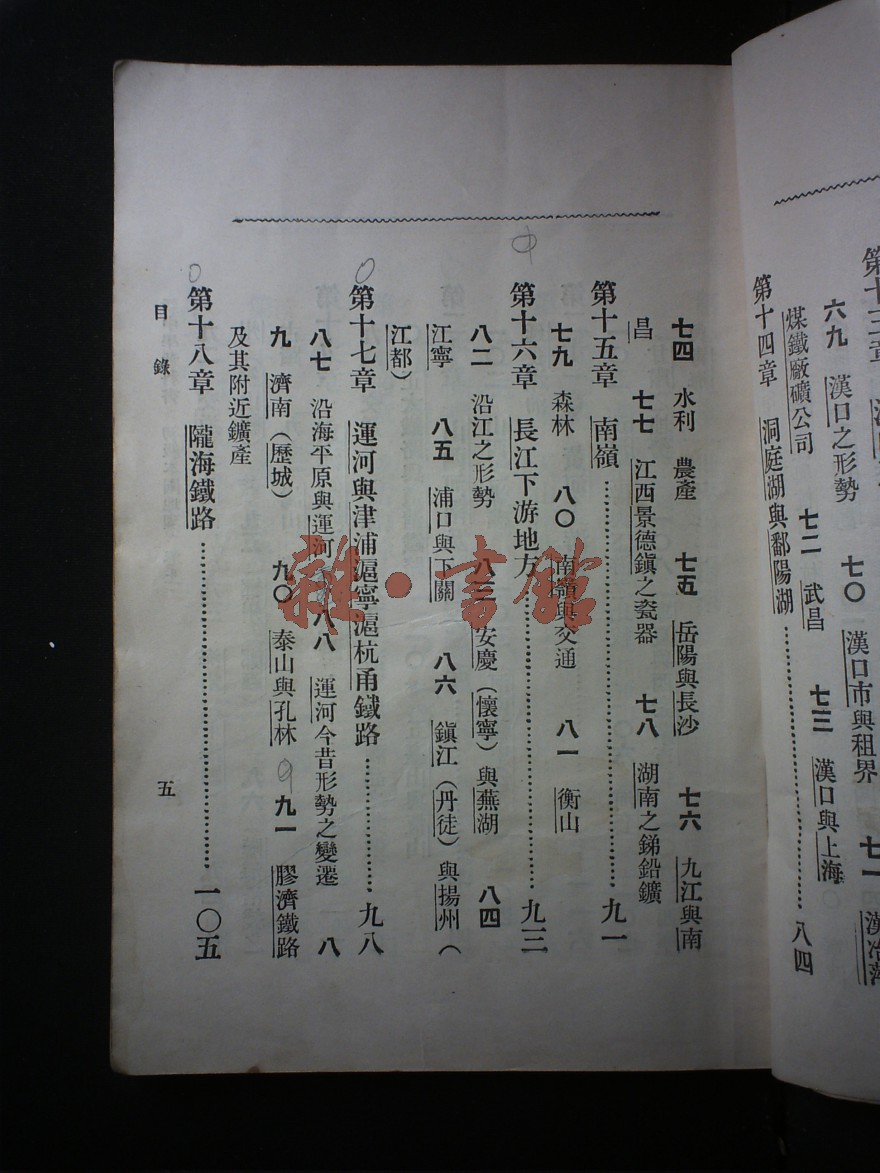 六九 漢口之形勢 七〇 漢口市與租界 七一
煤鐵廠礦公司 七二 武昌 七三 漢口與上海
第十四章 洞庭湖與鄱陽湖……八四
七四 水利 農產 七五 岳陽與長沙 七六 九江與南
昌 七七 江西景德鎮之瓷器 七八 湖南之銻鉛鑛
第十五章 南嶺……九一
七九 森林 八〇 南嶺與交通 八一 衡山
第十六章 長江下游地方……九三
八二 沿江之形勢 八三 安慶(懷寧)與蕪湖 八四
江寧 八五 浦口與下關 八六 鎮江(丹徒)與揚州(
江都)
第十七章 運河與津浦滬寧滬杭甬鐵路……九八
八七 沿海平原與運河 八八 運河今昔形勢之變遷 八
九 濟南(歷城) 九〇 泰山與孔林 九一 膠濟鐵路
及其附近鑛產
第十八章 隴海鐵路……一〇五
目錄
五
雜·書館